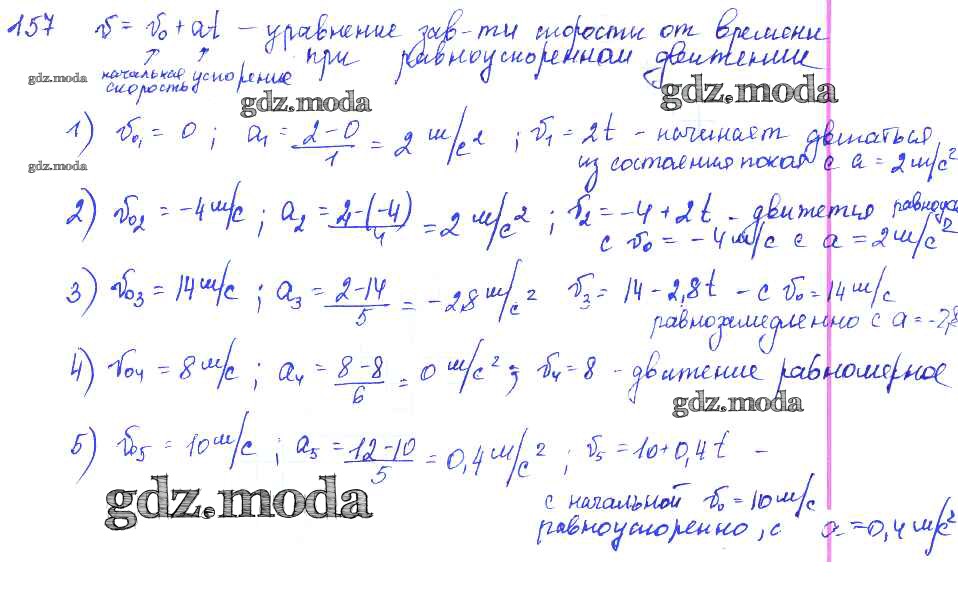 157 v = v₀ + at – уравнение зав-ти скорости от времени
при равноускоренном движении
gdz.moda начальная ускорение
скорость
gdz.moda gdz.moda
1) v₀₁ = 0 ; a₁ = (2-0)/1 = 2 м/с² ; v₁ = 2t - начинает двигаться
gdz.moda из состояния покоя с a = 2 м/с²
2) v₀₂ = -4 м/с ; a₂ = (4-(-4))/4 = 2 м/с² ; v₂ = -4 + 2t - движется равноус
с v₀ = -4 м/с с a = 2 м/с²
3) v₀₃ = 14 м/с ; a₃ = (2-14)/5 = -2,8 м/с² v₃ = 14 - 2,8t - с v₀ = 14 м/с
равнозамедленно с a = -2,8
4) v₀₄ = 8 м/с ; a₄ = (8-8)/6 = 0 м/с² ; v₄ = 8 - движение равномерное
gdz.moda
5) v₀₅ = 10 м/с ; a₅ = (12-10)/5 = 0,4 м/с² ; v₅ = 10+0,4t -
gdz.moda
с начальной v₀ = 10 м/с
равноускоренно, с a = 0,4 м/с²